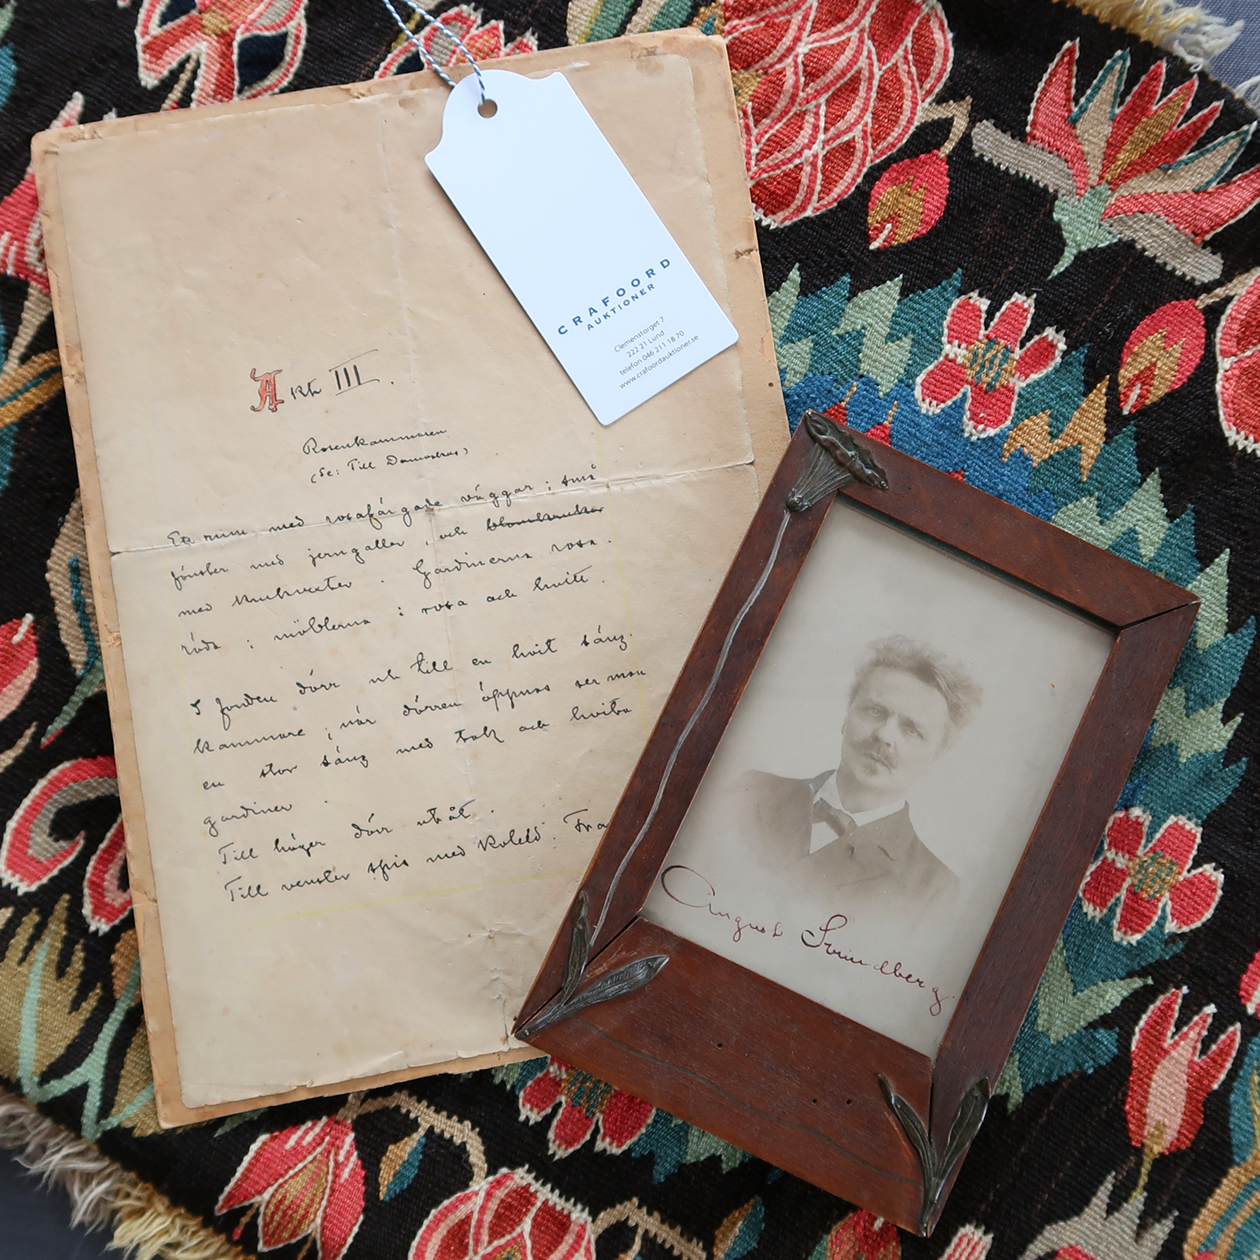 Akt III.
Rosenkammaren
(Se: Till Damaskus)
Ett rum med rosafärgade väggar; små
fönster med jerngaller, och blomkrukor
med Gardinerna rosa.
röda; möblerna i rosa och hvitt.
I fonden dörr ut till en hvit säng-
kammare; när dörren öppnas ser man
en stor säng med tak och hvita
gardiner.
Till höger dörr utåt.
Till venster spis med koleld. Fra
CRAFOORD
AUKTIONER
Clemenstorget 7
222 21 Lund
telefon 046 211 18 70
www.crafoordauktioner.se
August Strindberg.